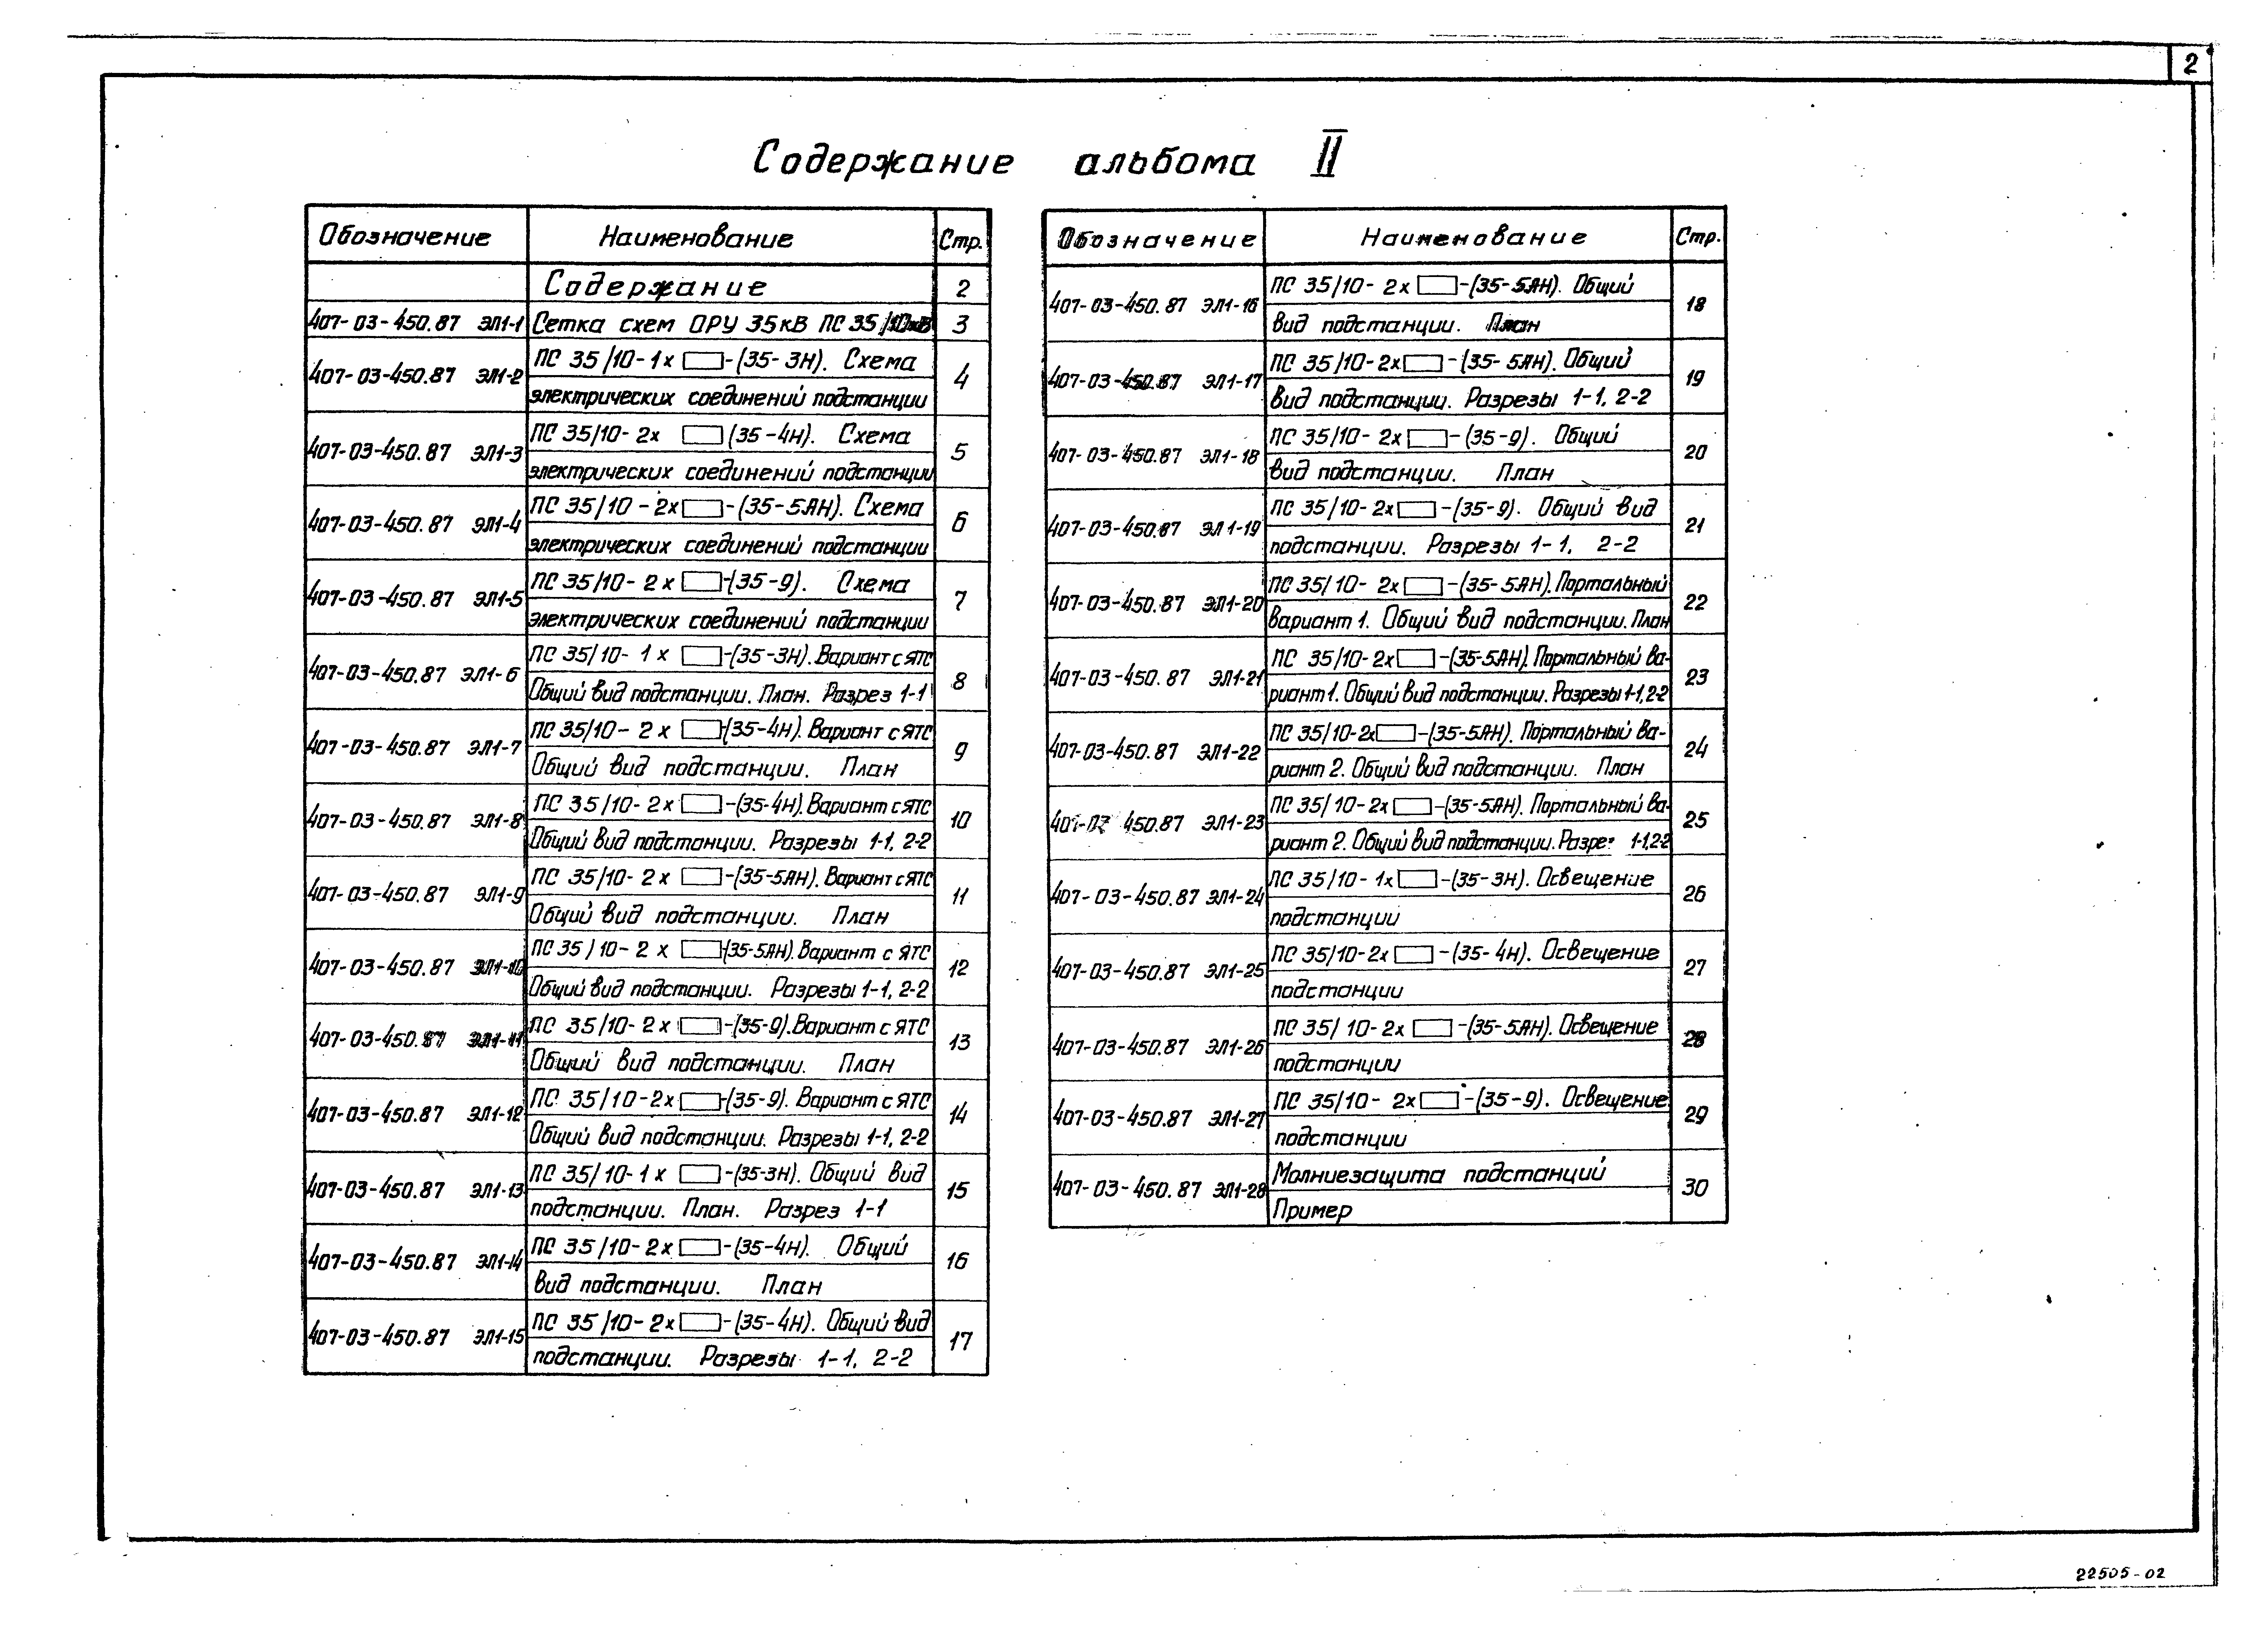 2
Содержание альбома II
Обозначение Наименование Стр.
Содержание 2
407-03-450.87 ЭЛ1-1 Сетка схем ОРУ 35кВ ПС 35/10кВ 3
407-03-450.87 ЭЛ1-2 ПС 35/10-1х▭-(35-3Н). Схема 4
электрических соединений подстанции
407-03-450.87 ЭЛ1-3 ПС 35/10-2х ▭(35-4Н). Схема 5
электрических соединений подстанции
407-03-450.87 ЭЛ1-4 ПС 35/10-2х▭-(35-5АН). Схема 6
электрических соединений подстанции
407-03-450.87 ЭЛ1-5 ПС 35/10-2х▭-(35-9). Схема 7
электрических соединений подстанции
407-03-450.87 ЭЛ1-6 ПС 35/10-1х▭-(35-3Н). Вариант с ЯТС 8
Общий вид подстанции. План. Разрез 1-1
407-03-450.87 ЭЛ1-7 ПС 35/10-2х▭-(35-4Н). Вариант с ЯТС 9
Общий вид подстанции. План
407-03-450.87 ЭЛ1-8 ПС 35/10-2х▭-(35-4Н). Вариант с ЯТС 10
Общий вид подстанции. Разрезы 1-1, 2-2
407-03-450.87 ЭЛ1-9 ПС 35/10-2х▭-(35-5АН). Вариант с ЯТС 11
Общий вид подстанции. План
407-03-450.87 ЭЛ1-10 ПС 35/10-2х▭-(35-5АН). Вариант с ЯТС 12
Общий вид подстанции. Разрезы 1-1, 2-2
407-03-450.87 ЭЛ1-11 ПС 35/10-2х▭-(35-9). Вариант с ЯТС 13
Общий вид подстанции. План
407-03-450.87 ЭЛ1-12 ПС 35/10-2х▭-(35-9). Вариант с ЯТС 14
Общий вид подстанции. Разрезы 1-1, 2-2
407-03-450.87 ЭЛ1-13 ПС 35/10-1х▭-(35-3Н). Общий вид 15
подстанции. План. Разрез 1-1
407-03-450.87 ЭЛ1-14 ПС 35/10-2х▭-(35-4Н). Общий 16
вид подстанции. План
407-03-450.87 ЭЛ1-15 ПС 35/10-2х▭-(35-4Н). Общий вид 17
подстанции. Разрезы 1-1, 2-2
Обозначение Наименование Стр.
407-03-450.87 ЭЛ1-16 ПС 35/10-2х▭-(35-5АН). Общий 18
вид подстанции. План
407-03-450.87 ЭЛ1-17 ПС 35/10-2х▭-(35-5АН). Общий 19
вид подстанции. Разрезы 1-1, 2-2
407-03-450.87 ЭЛ1-18 ПС 35/10-2х▭-(35-9). Общий 20
вид подстанции. План
407-03-450.87 ЭЛ1-19 ПС 35/10-2х▭-(35-9). Общий вид 21
подстанции. Разрезы 1-1, 2-2
407-03-450.87 ЭЛ1-20 ПС 35/10-2х▭-(35-5АН). Портальный 22
вариант 1. Общий вид подстанции. План
407-03-450.87 ЭЛ1-21 ПС 35/10-2х▭-(35-5АН). Портальный ва- 23
риант 1. Общий вид подстанции. Разрезы 1-1, 2-2
407-03-450.87 ЭЛ1-22 ПС 35/10-2х▭-(35-5АН). Портальный ва- 24
риант 2. Общий вид подстанции. План
450.87 ЭЛ1-23 ПС 35/10-2х▭-(35-5АН). Портальный ва- 25
риант 2. Общий вид подстанции. 1-1, 2-2
407-03-450.87 ЭЛ1-24 ПС 35/10-1х▭-(35-3Н). Освещение 26
подстанции
407-03-450.87 ЭЛ1-25 ПС 35/10-2х▭-(35-4Н). Освещение 27
подстанции
407-03-450.87 ЭЛ1-26 ПС 35/10-2х▭-(35-5АН). Освещение 28
подстанции
407-03-450.87 ЭЛ1-27 ПС 35/10-2х▭-(35-9). Освещение 29
подстанции
407-03-450.87 ЭЛ1-28 Молниезащита подстанций 30
Пример
22505-02